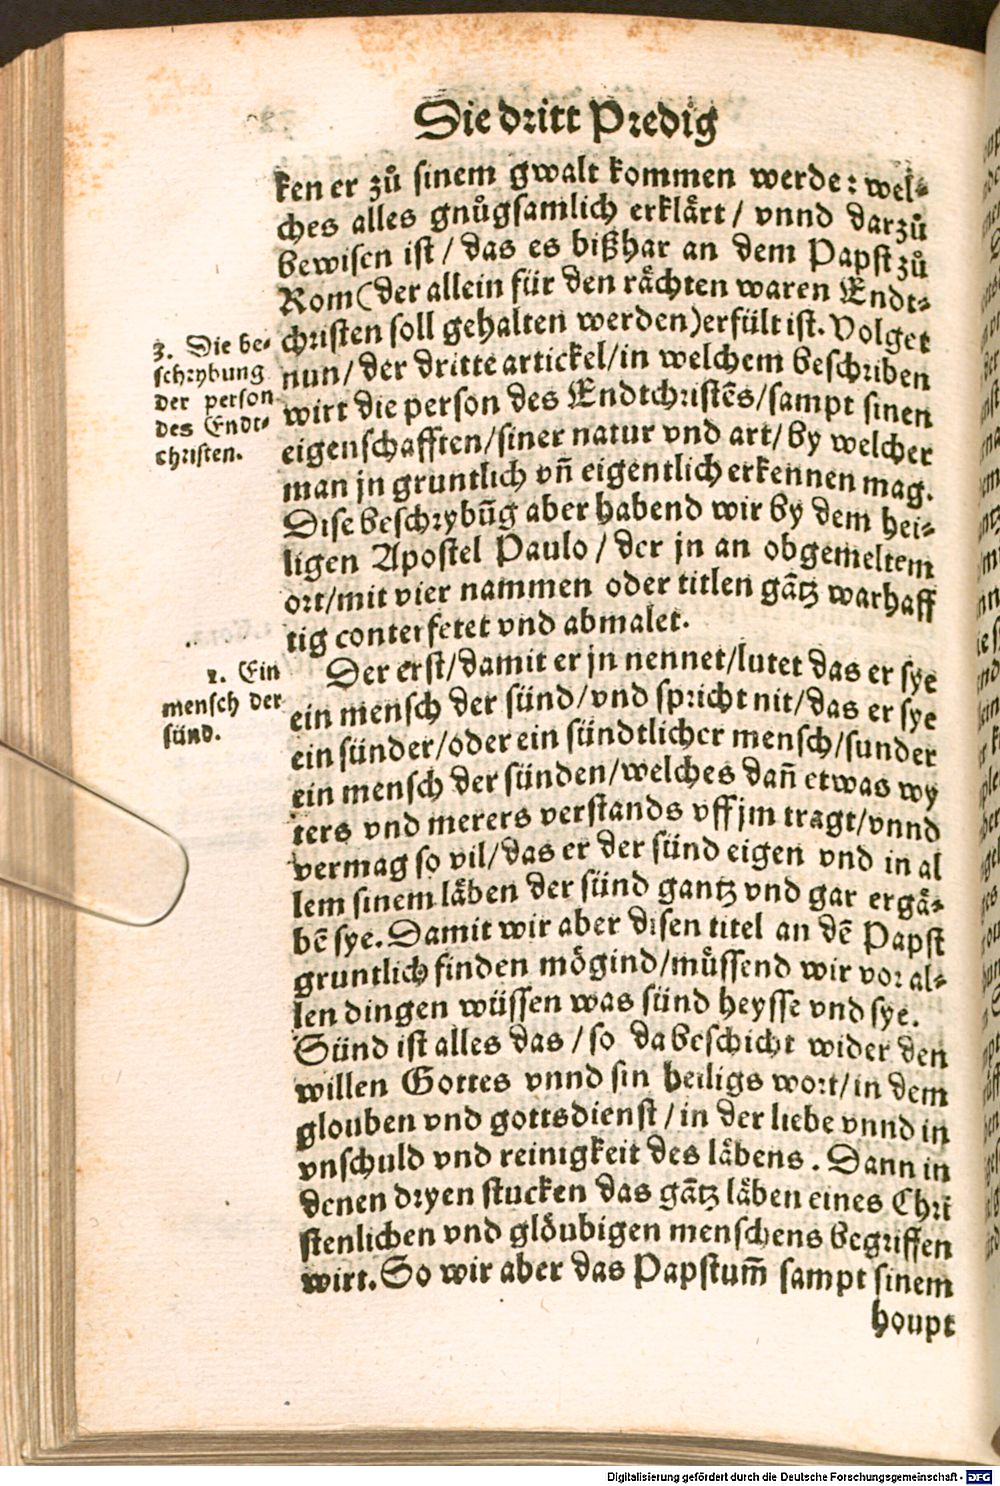 Die dritt Predig
ken er zů sinem gwalt kommen werde: wel⸗
ches alles gnůgsamlich erklärt / vnnd darzů
bewisen ist / das es bißhar an dem Papst zů
Rom (der allein für den rächten waren Endt⸗
christen soll gehalten werden) erfült ist. Volget
nun / der dritte artickel / in welchem beschriben
wirt die person des Endtchristēs / sampt sinen
eigenschafften / siner natur vnd art / by welcher
man jn gruntlich vñ eigentlich erkennen mag.
Dise beschrybūg aber habend wir by dem hei⸗
ligen Apostel Paulo / der jn an obgemeltem
ort / mit vier nammen oder titlen gātz warhaff
tig conterfetet vnd abmalet.
3. Die be⸗
schrybung
der person
des Endt⸗
christen.
Der erst / damit er jn nennet / lutet das er sye
ein mensch der sünd / vnd spricht nit / das er sye
ein sünder / oder ein sündtlicher mensch / sunder
ein mensch der sünden / welches dañ etwas wy
ters vnd merers verstands vff jm tragt / vnnd
vermag so vil / das er der sünd eigen vnd in al
lem sinem läben der sünd gantz vnd gar ergä⸗
bē sye. Damit wir aber disen titel an dē Papst
gruntlich finden mögind / müssend wir vor al⸗
len dingen wüssen was sünd heysse vnd sye.
1. Ein
mensch der
sünd.
Sünd ist alles das / so da beschicht wider den
willen Gottes vnnd sin heiligs wort / in dem
glouben vnd gottsdienst / in der liebe vnnd in
vnschuld vnd reinigkeit des läbens. Dann in
denen dryen stucken das gātz läben eines Chri
stenlichen vnd glöubigen menschens begriffen
wirt. So wir aber das Papstum̄ sampt sinem
houpt
Digitalisierung gefördert durch die Deutsche Forschungsgemeinschaft - DFG